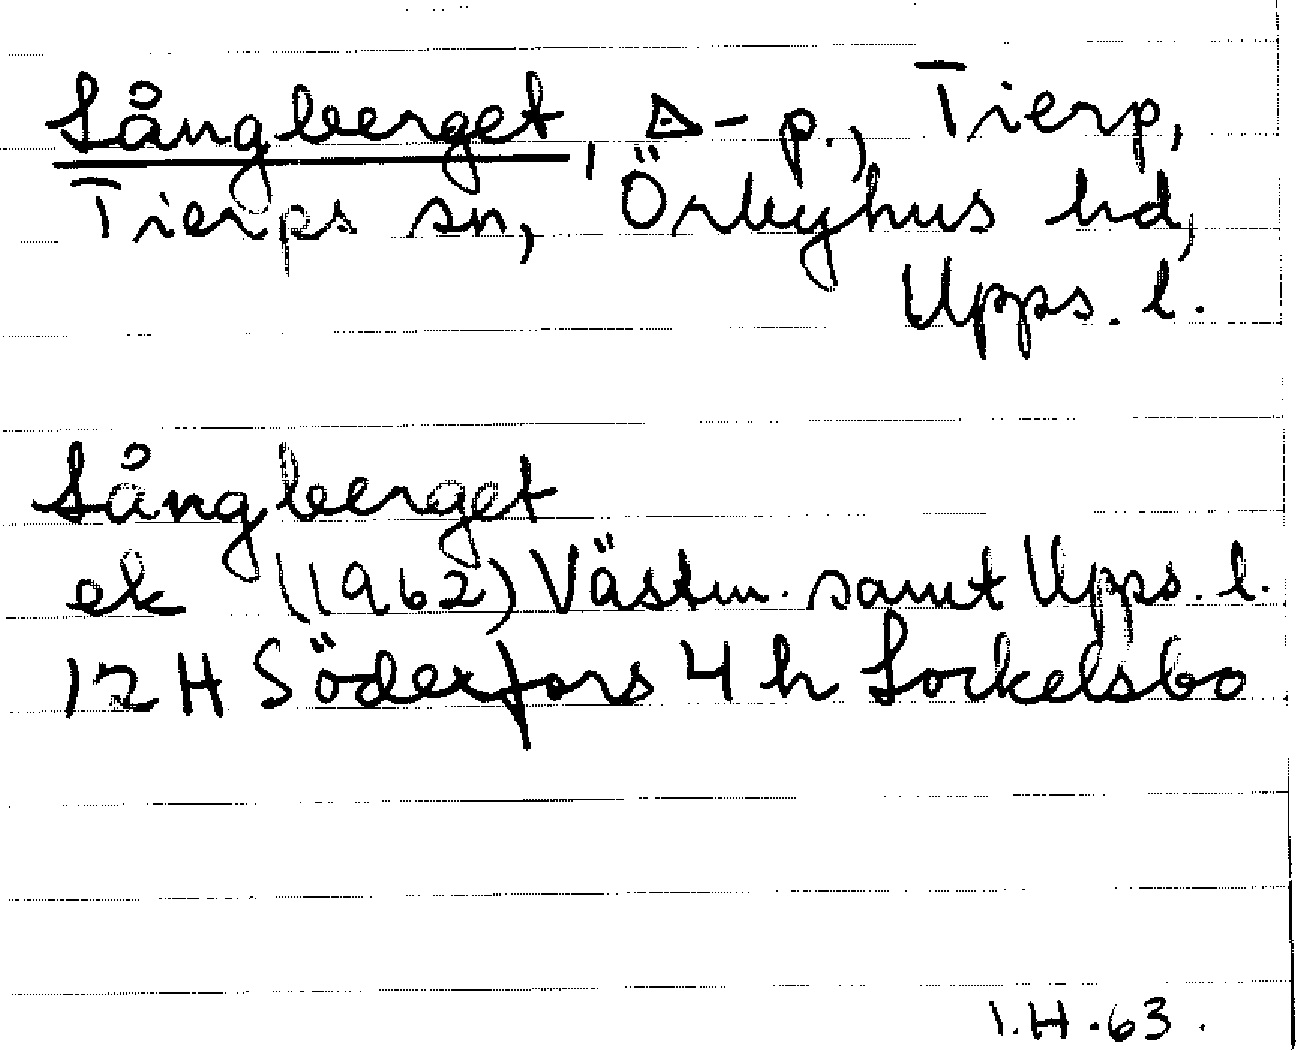 Långberget, ◬-p., Tierp,
Tierps sn, Örbyhus hd,
Upps. l.
Långberget
ek (1962) Västm. samt Upps. l.
12 H Söderfors 4 h Lockelsbo
I.H.63.